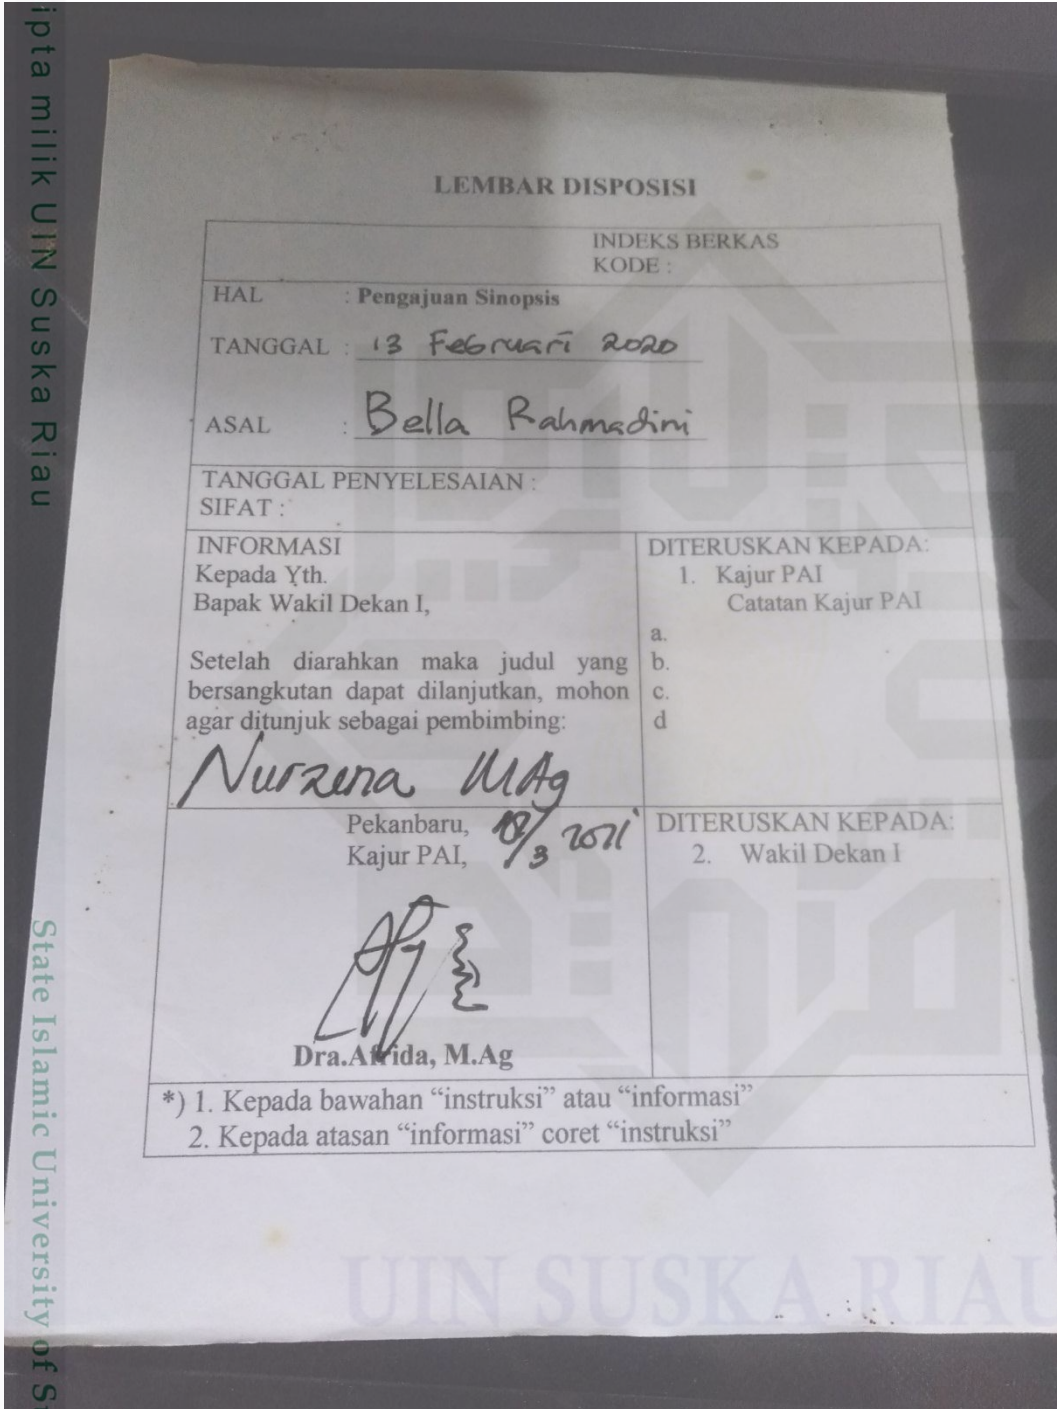 LEMBAR DISPOSISI
INDEKS BERKAS
KODE :
HAL : Pengajuan Sinopsis
TANGGAL : 13 Februari 2020
ASAL : Bella Rahmadini
TANGGAL PENYELESAIAN :
SIFAT :
INFORMASI
Kepada Yth.
Bapak Wakil Dekan I,
Setelah diarahkan maka judul yang
bersangkutan dapat dilanjutkan, mohon
agar ditunjuk sebagai pembimbing:
Nurzena MAg
DITERUSKAN KEPADA:
1. Kajur PAI
Catatan Kajur PAI
a.
b.
c.
d
Pekanbaru, /3 2021
Kajur PAI,
Dra.Afrida, M.Ag
DITERUSKAN KEPADA:
2. Wakil Dekan I
*) 1. Kepada bawahan “instruksi” atau “informasi”
2. Kepada atasan “informasi” coret “instruksi”
ipta milik UIN Suska Riau
State Islamic University of S
UIN SUSKA RIAU